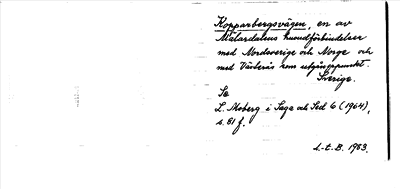 Kopparbergsvägen, en av
Mälardalens huvudförbindelser
med Nordsverige och Norge och
med Västerås som utgångspunkt.
Sverige.
Se
L. Moberg i Saga och Sed 6 (1964),
s. 81 f.
L-t. B. 1983.